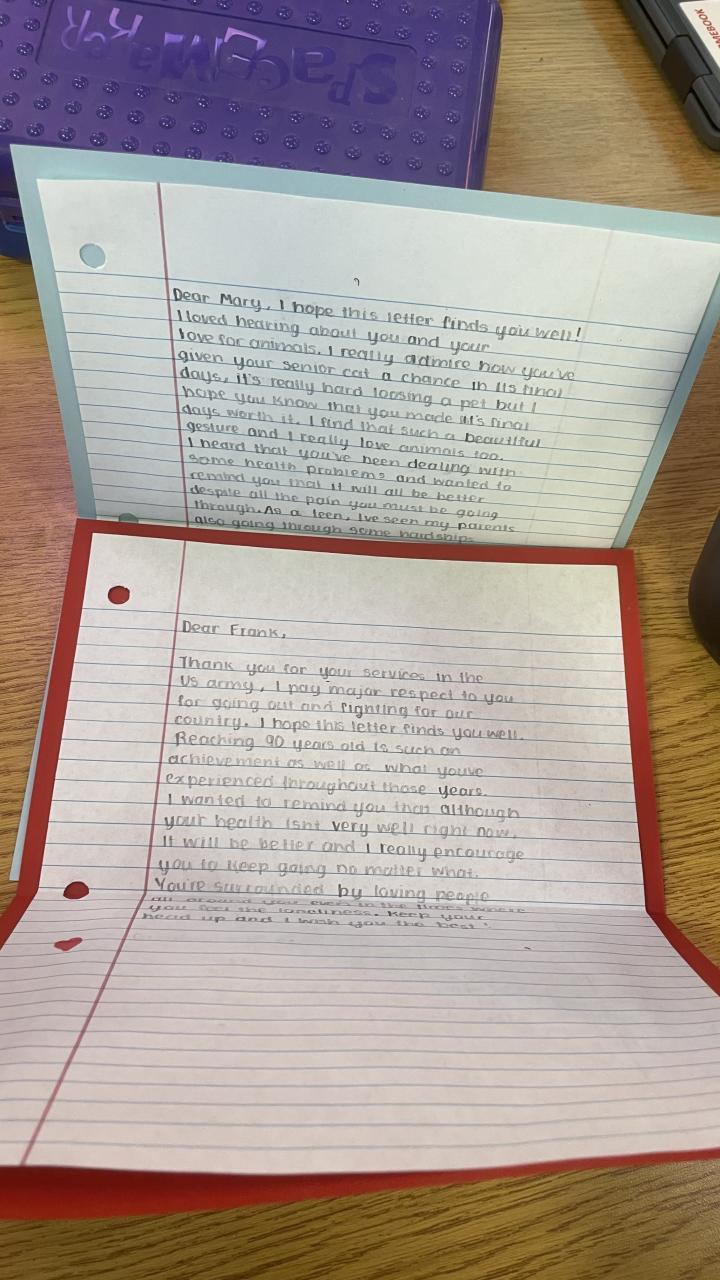 SPACEMAKER
MEBOOK
Dear Mary, I hope this letter finds you well!
I loved hearing about you and your
love for animals. I really admire how you've
given your senior cat a chance in its final
days, it's really hard loosing a pet but I
hope you know that you made it's final
days worth it. I find that such a beautiful
gesture and I really love animals too.
I heard that you've been dealing with
some health problems and wanted to
remind you that it will all be better
despite all the pain you must be going
through. As a teen, Ive seen my parents
also going through some hardships
Dear Frank,
Thank you for your services in the
US army, I pay major respect to you
for going out and fighting for our
country. I hope this letter finds you well.
Reaching 90 years old is such an
achievement as well as what youve
experienced throughout those years.
I wanted to remind you that although
your health isnt very well right now,
it will be better and I really encourage
you to keep going no matter what.
You're surrounded by loving people
all around you even in the times where
you feel the loneliness. Keep your
head up and I wish you the best!